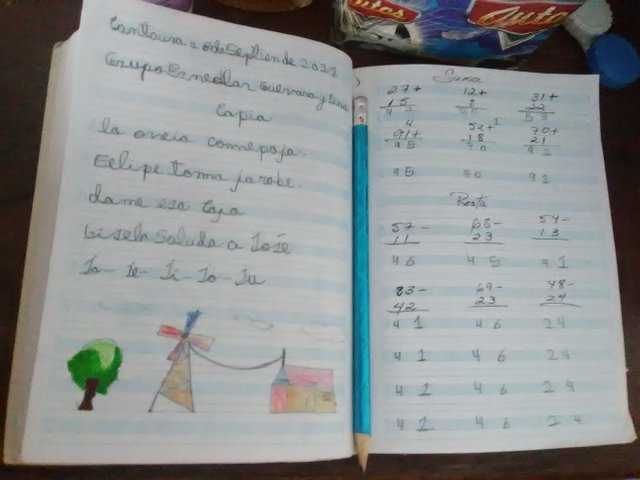 Cantaura 20 de Septiende 2021
Grupo Ezneclar Guevara y
Copia
la oveia come paja.
Felipe toma jarobe.
dame esa Caja
Gisela Saluda a José
Ja- Je- Ji- Jo- Ju
Suma
27+ 12+ 31+
15 8 22
4
91+ 52+ 1 70+
18 21
95 70 91
95 70 91
Resta
57- 68- 54-
11 23 13
46 45 41
83- 69- 48-
42 23 24
41 46 24
41 46 24
41 46 24
41 46 24
Autos